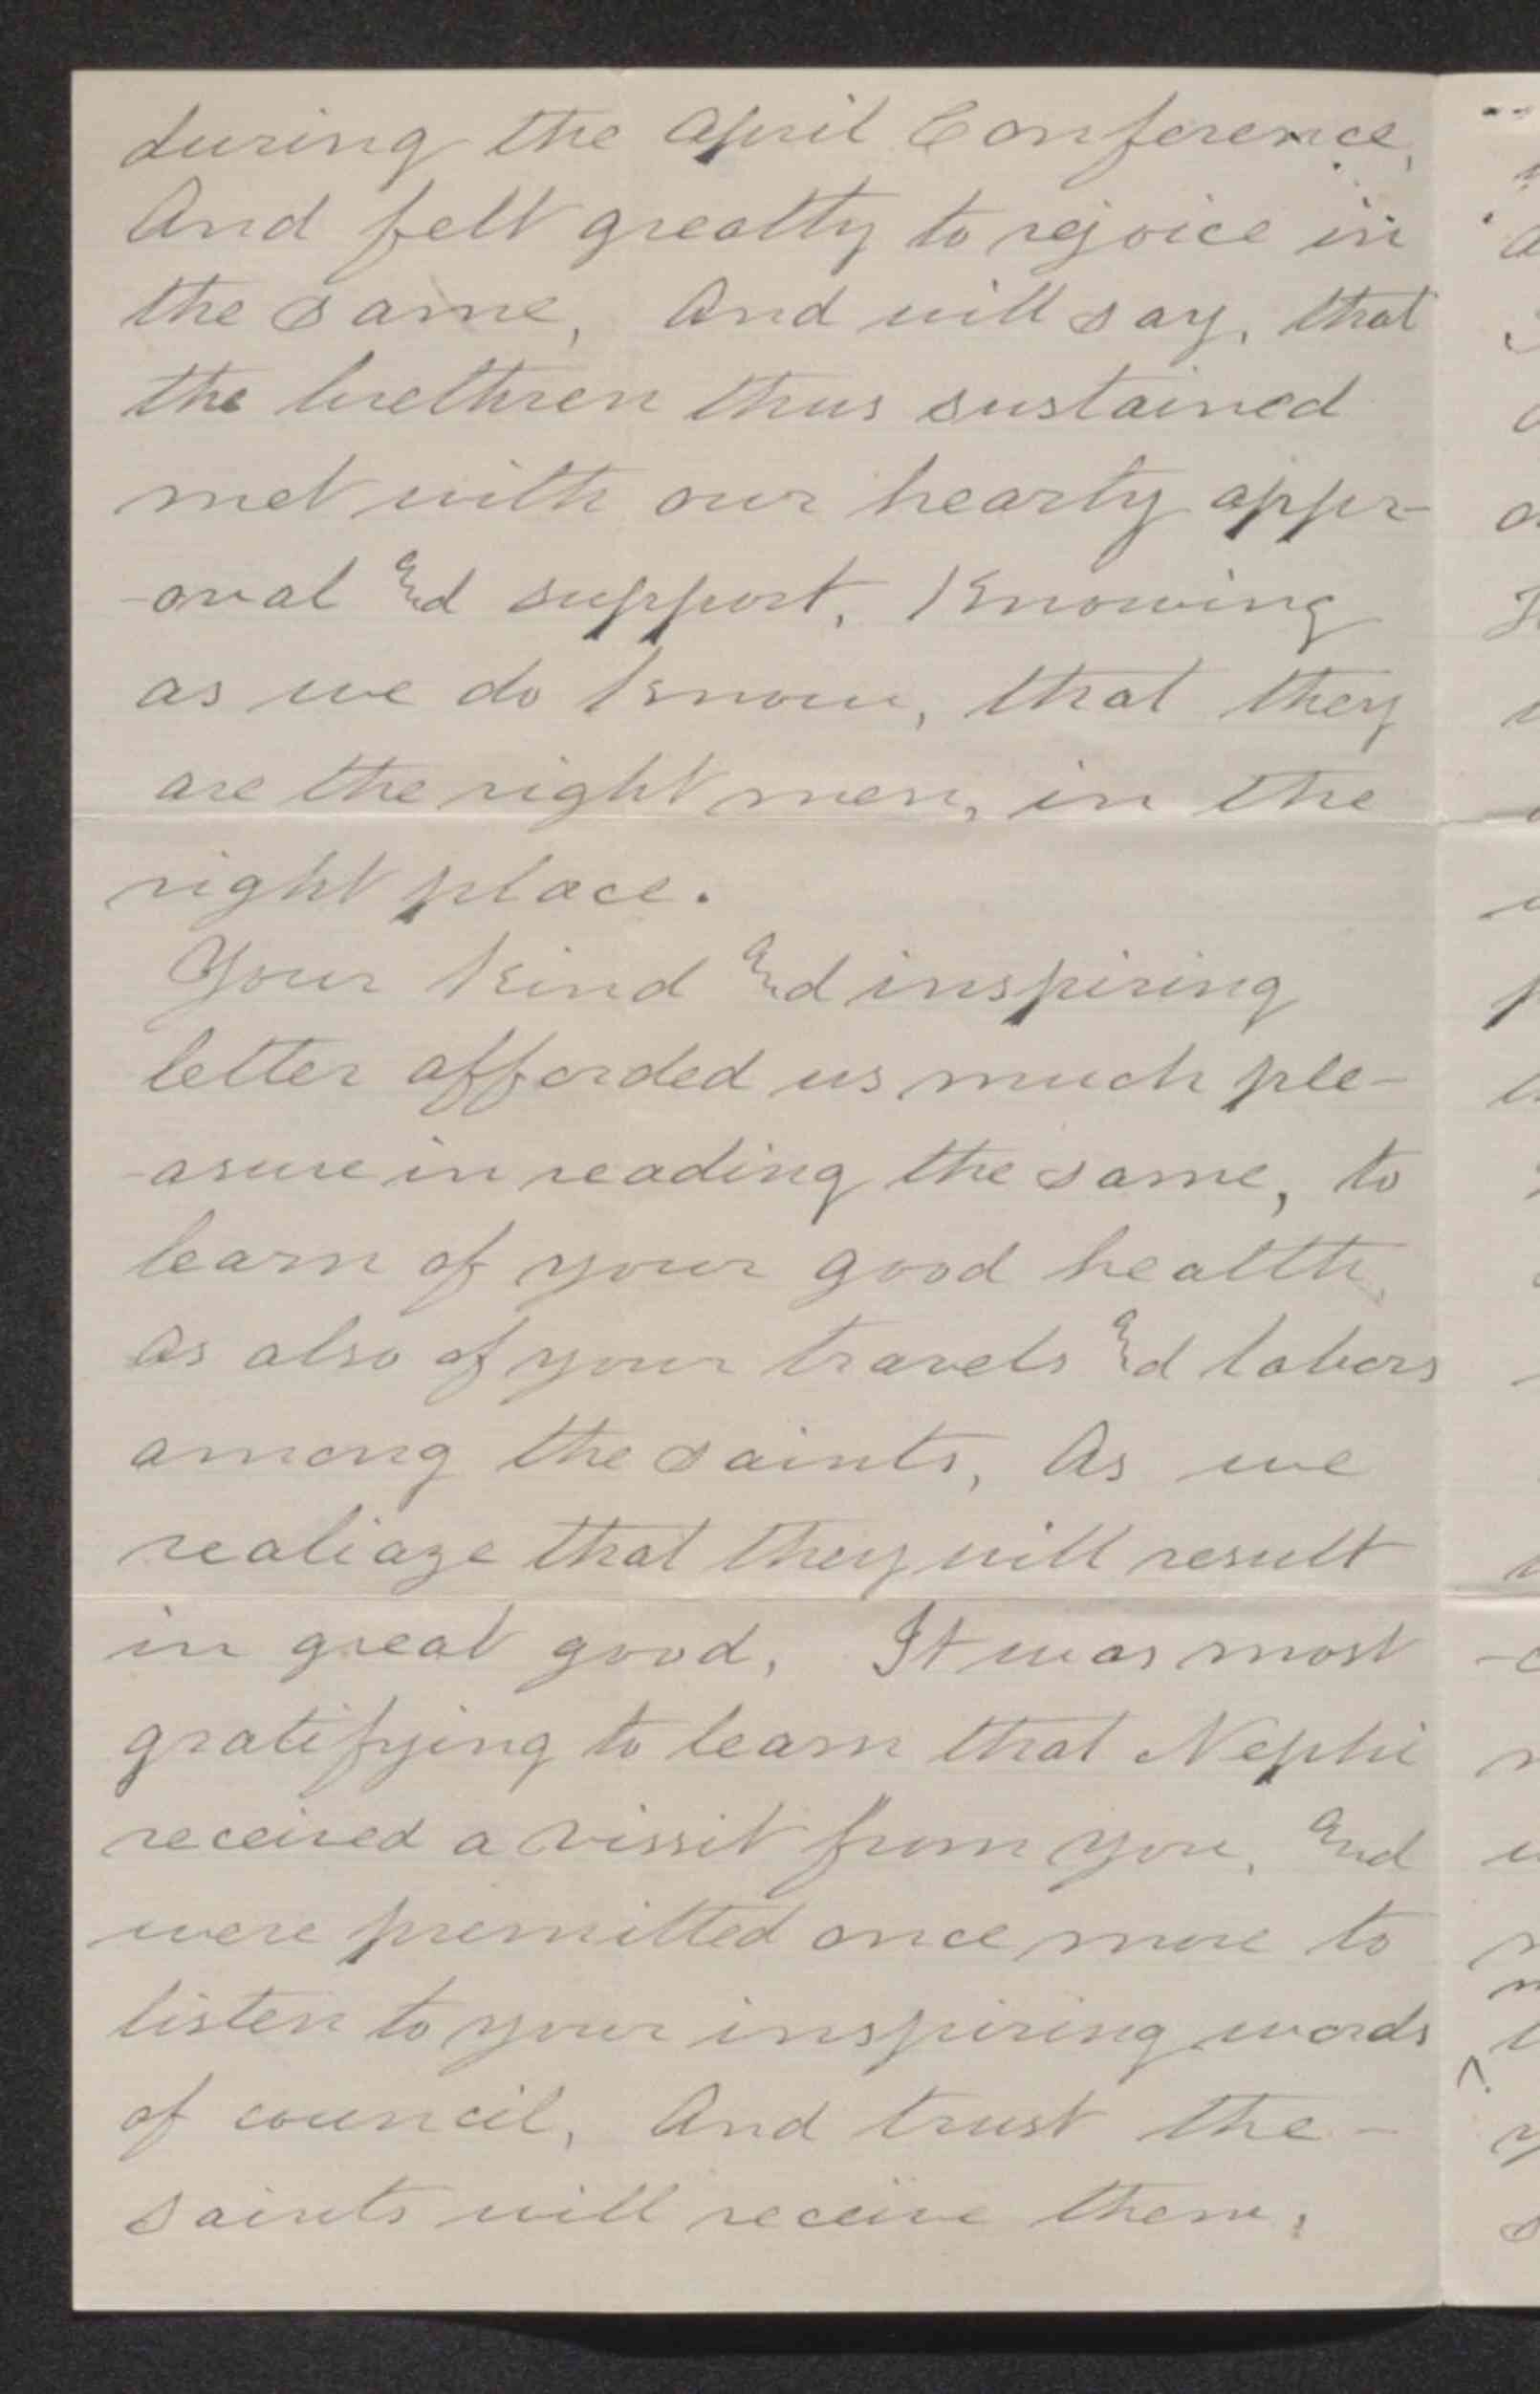 during the April Conference,
And felt greatly to rejoice in
the same, And will say, that
the brethren thus sustained
met with our hearty appr-
-oval and support, Knowing
as we do know, that they
are the right men, in the
right place.
Your kind and inspiring
letter afforded us much ple-
-asure in reading the same, to
learn of your good health,
as also of your travels and labors
among the saints, As we
realiaze that they will result
in great good, It was most
gratifying to learn that Nephi
received a vissit from you, and
were premitted once more to
listen to your inspiring words
of council, And trust the-
saints will receive them,